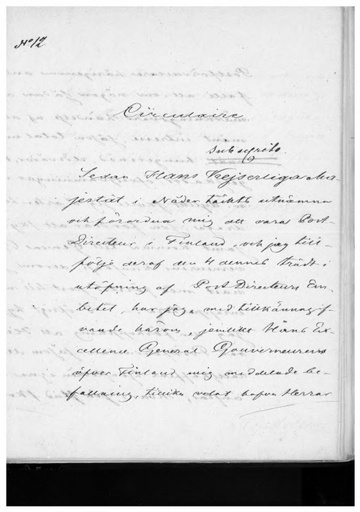 No 12
Circulaire
sub signeto
Sedan Hans Kejserliga Ma-
jestät i Nåder täckts utnämna
och förordna mig att vara Post
Directeur i Finland, och jag till-
följe deraf den 4 dennes trädt i
utöfning af Post Directeurs Em-
betet, har jag, med tillkännagif-
vande härom, jemlikt Hans Ex-
cellence General Gouverneurens
öfver Finland mig meddelade be-
fallning, tillika velat Herrar